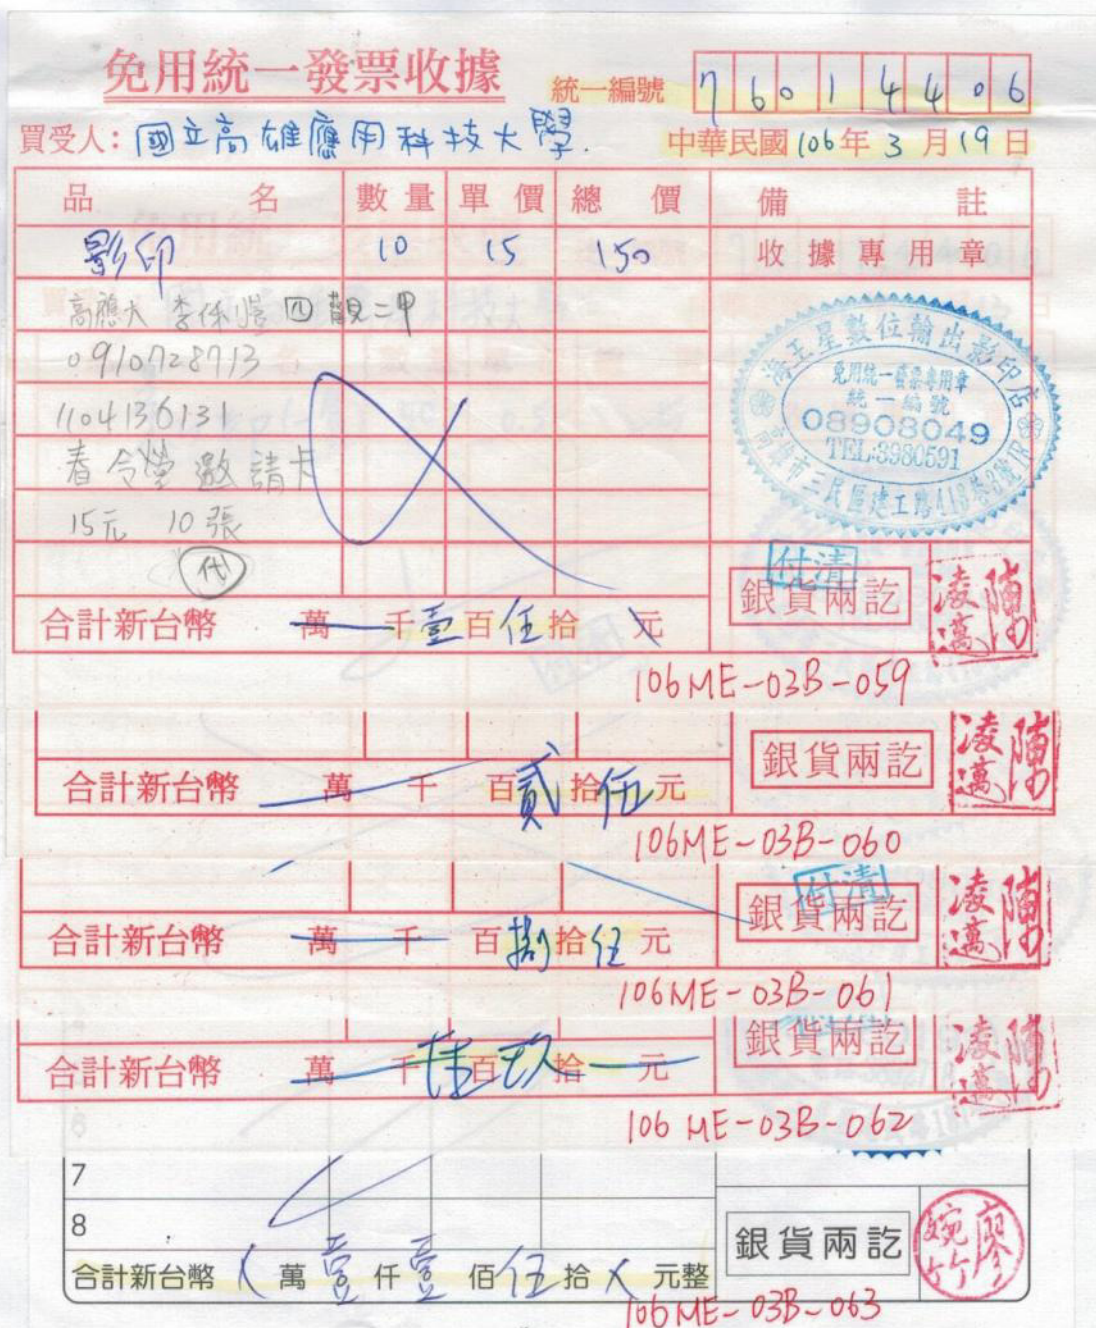 免用統一發票收據
統一編號 76014406
買受人：國立高雄應用科技大學.
中華民國106年3月19日
品名 數量 單價 總價 備註
影印 10 15 150 收據專用章
高應大 四觀二甲
0910728713
1104136131
春令營邀請卡
15元 10張
代
海王星數位輸出影印店
免用統一發票專用章
統一編號
08908049
TEL:3980591
高雄市三民區建工路
付清
銀貨兩訖
合計新台幣 萬 千壹百伍拾 元
106ME-03B-059
銀貨兩訖
合計新台幣 萬 千 百貳拾伍元
106ME-03B-060
付清
銀貨兩訖
合計新台幣 萬 千 百捌拾伍元
106ME-03B-061
銀貨兩訖
合計新台幣 萬 千陸百玖拾 元
106ME-03B-062
7
8
銀貨兩訖
廖婉竹
合計新台幣 萬壹仟壹佰伍拾 元整
106ME-03B-063